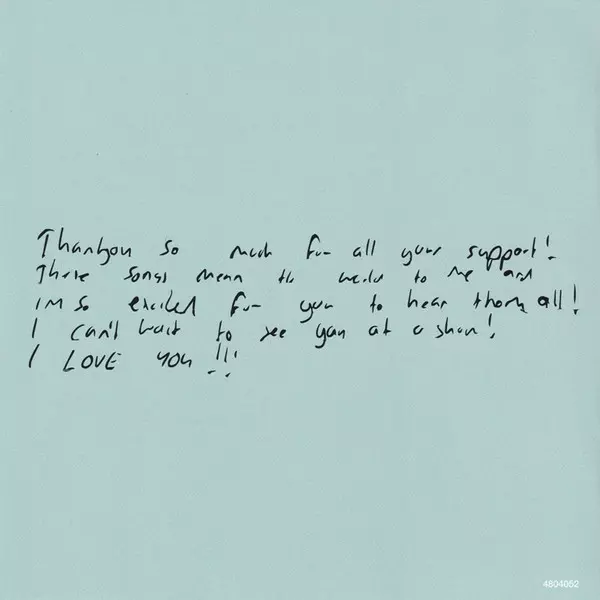 Thankyou so much for all your support!
These songs mean the world to me and
im so excited for you to hear them all!
I can't wait to see you at a show!
I LOVE YOU !!!
4804052